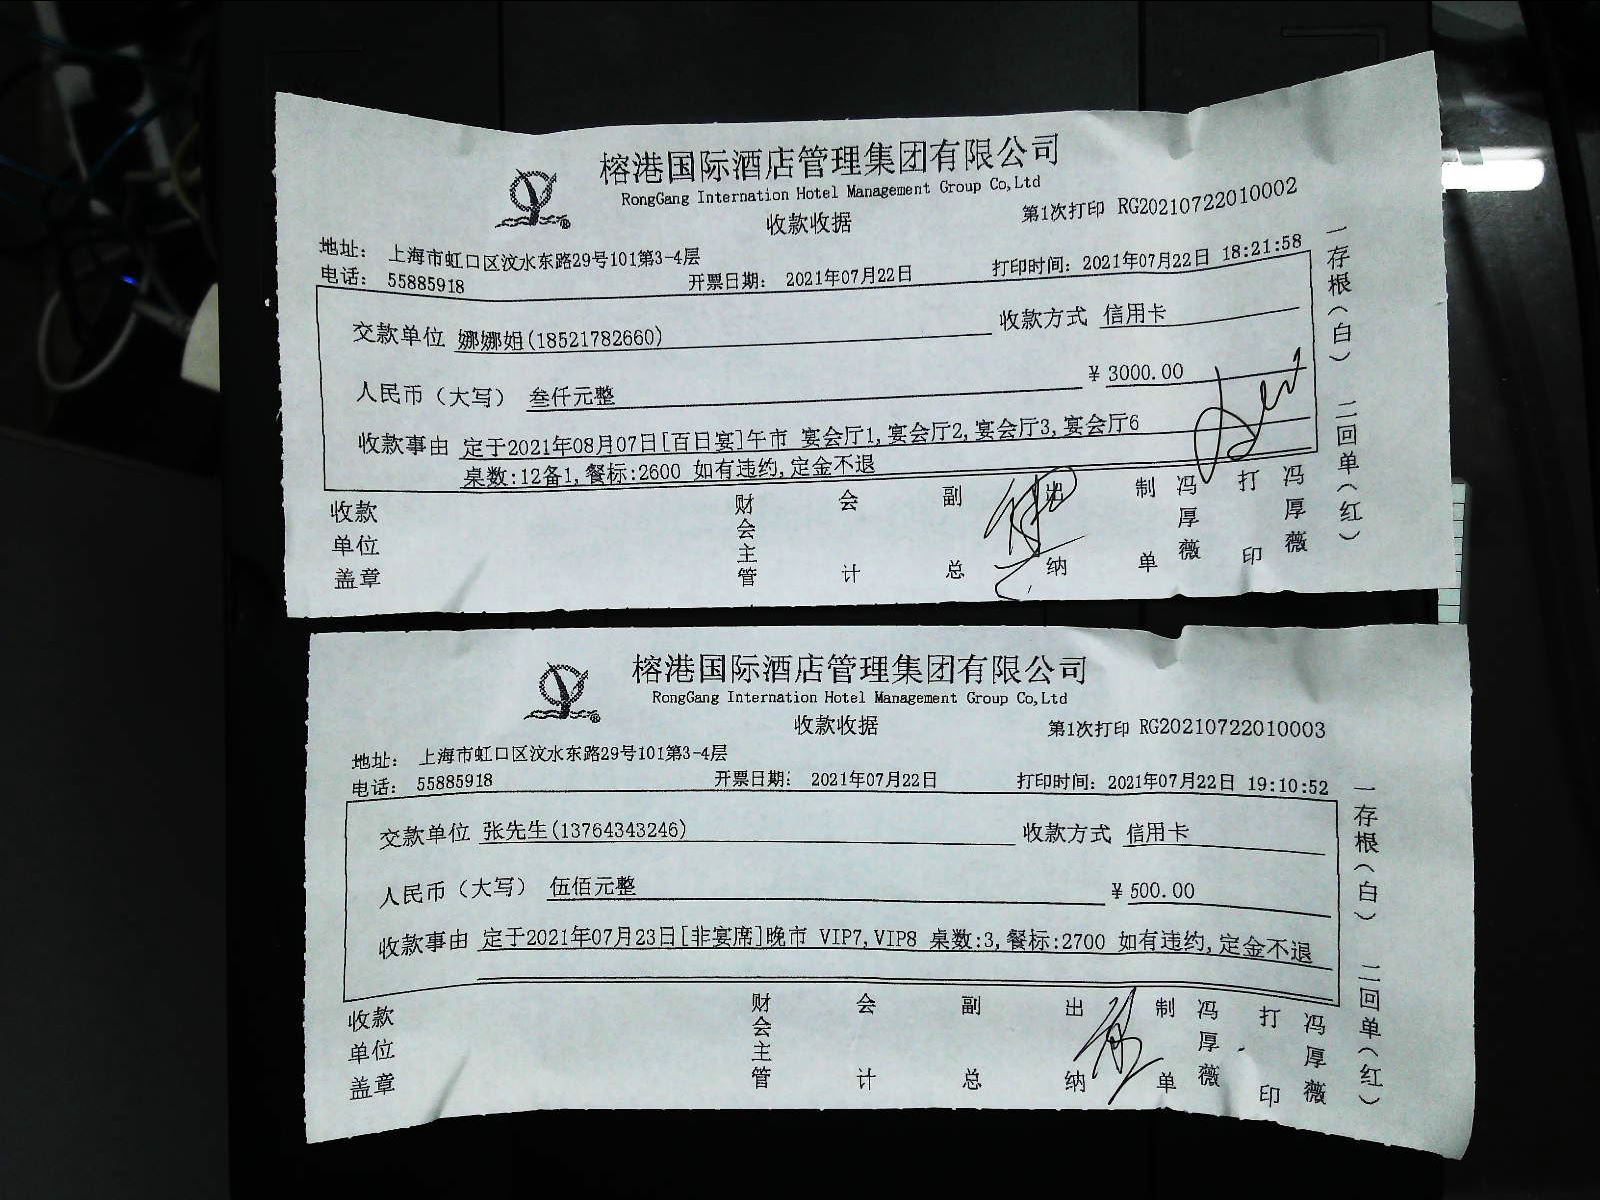 榕港国际酒店管理集团有限公司
RongGang Internation Hotel Management Group Co,Ltd
收款收据
第1次打印 RG20210722010002
地址： 上海市虹口区汶水东路29号101第3-4层
电话： 55885918 开票日期： 2021年07月22日 打印时间：2021年07月22日 18:21:58
交款单位 娜娜姐(18521782660) 收款方式 信用卡
人民币（大写） 叁仟元整 ¥ 3000.00
收款事由 定于2021年08月07日[百日宴]午市 宴会厅1,宴会厅2,宴会厅3,宴会厅6
桌数:12备1,餐标:2600 如有违约,定金不退
收款单位盖章 财会主管 会计 副总 出纳 制单 冯厚薇 打印 冯厚薇
一存根（白） 二回单（红）
榕港国际酒店管理集团有限公司
RongGang Internation Hotel Management Group Co,Ltd
收款收据
第1次打印 RG20210722010003
地址： 上海市虹口区汶水东路29号101第3-4层
电话： 55885918 开票日期： 2021年07月22日 打印时间：2021年07月22日 19:10:52
交款单位 张先生(13764343246) 收款方式 信用卡
人民币（大写） 伍佰元整 ¥ 500.00
收款事由 定于2021年07月23日[非宴席]晚市 VIP7,VIP8 桌数:3,餐标:2700 如有违约,定金不退
收款单位盖章 财会主管 会计 副总 出纳 制单 冯厚薇 打印 冯厚薇
一存根（白） 二回单（红）